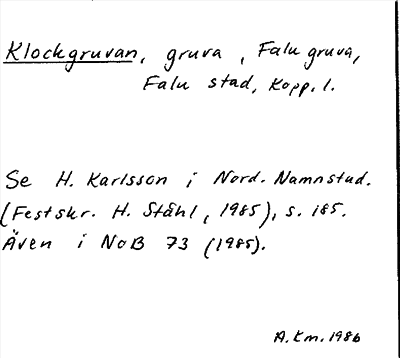 Klockgruvan, gruva, Falu gruva,
Falu stad, Kopp. l.
Se H. Karlsson i Nord. Namnstud.
(Festskr. H. Ståhl, 1985), s. 185.
Även i NoB 73 (1985).
A. Km. 1986